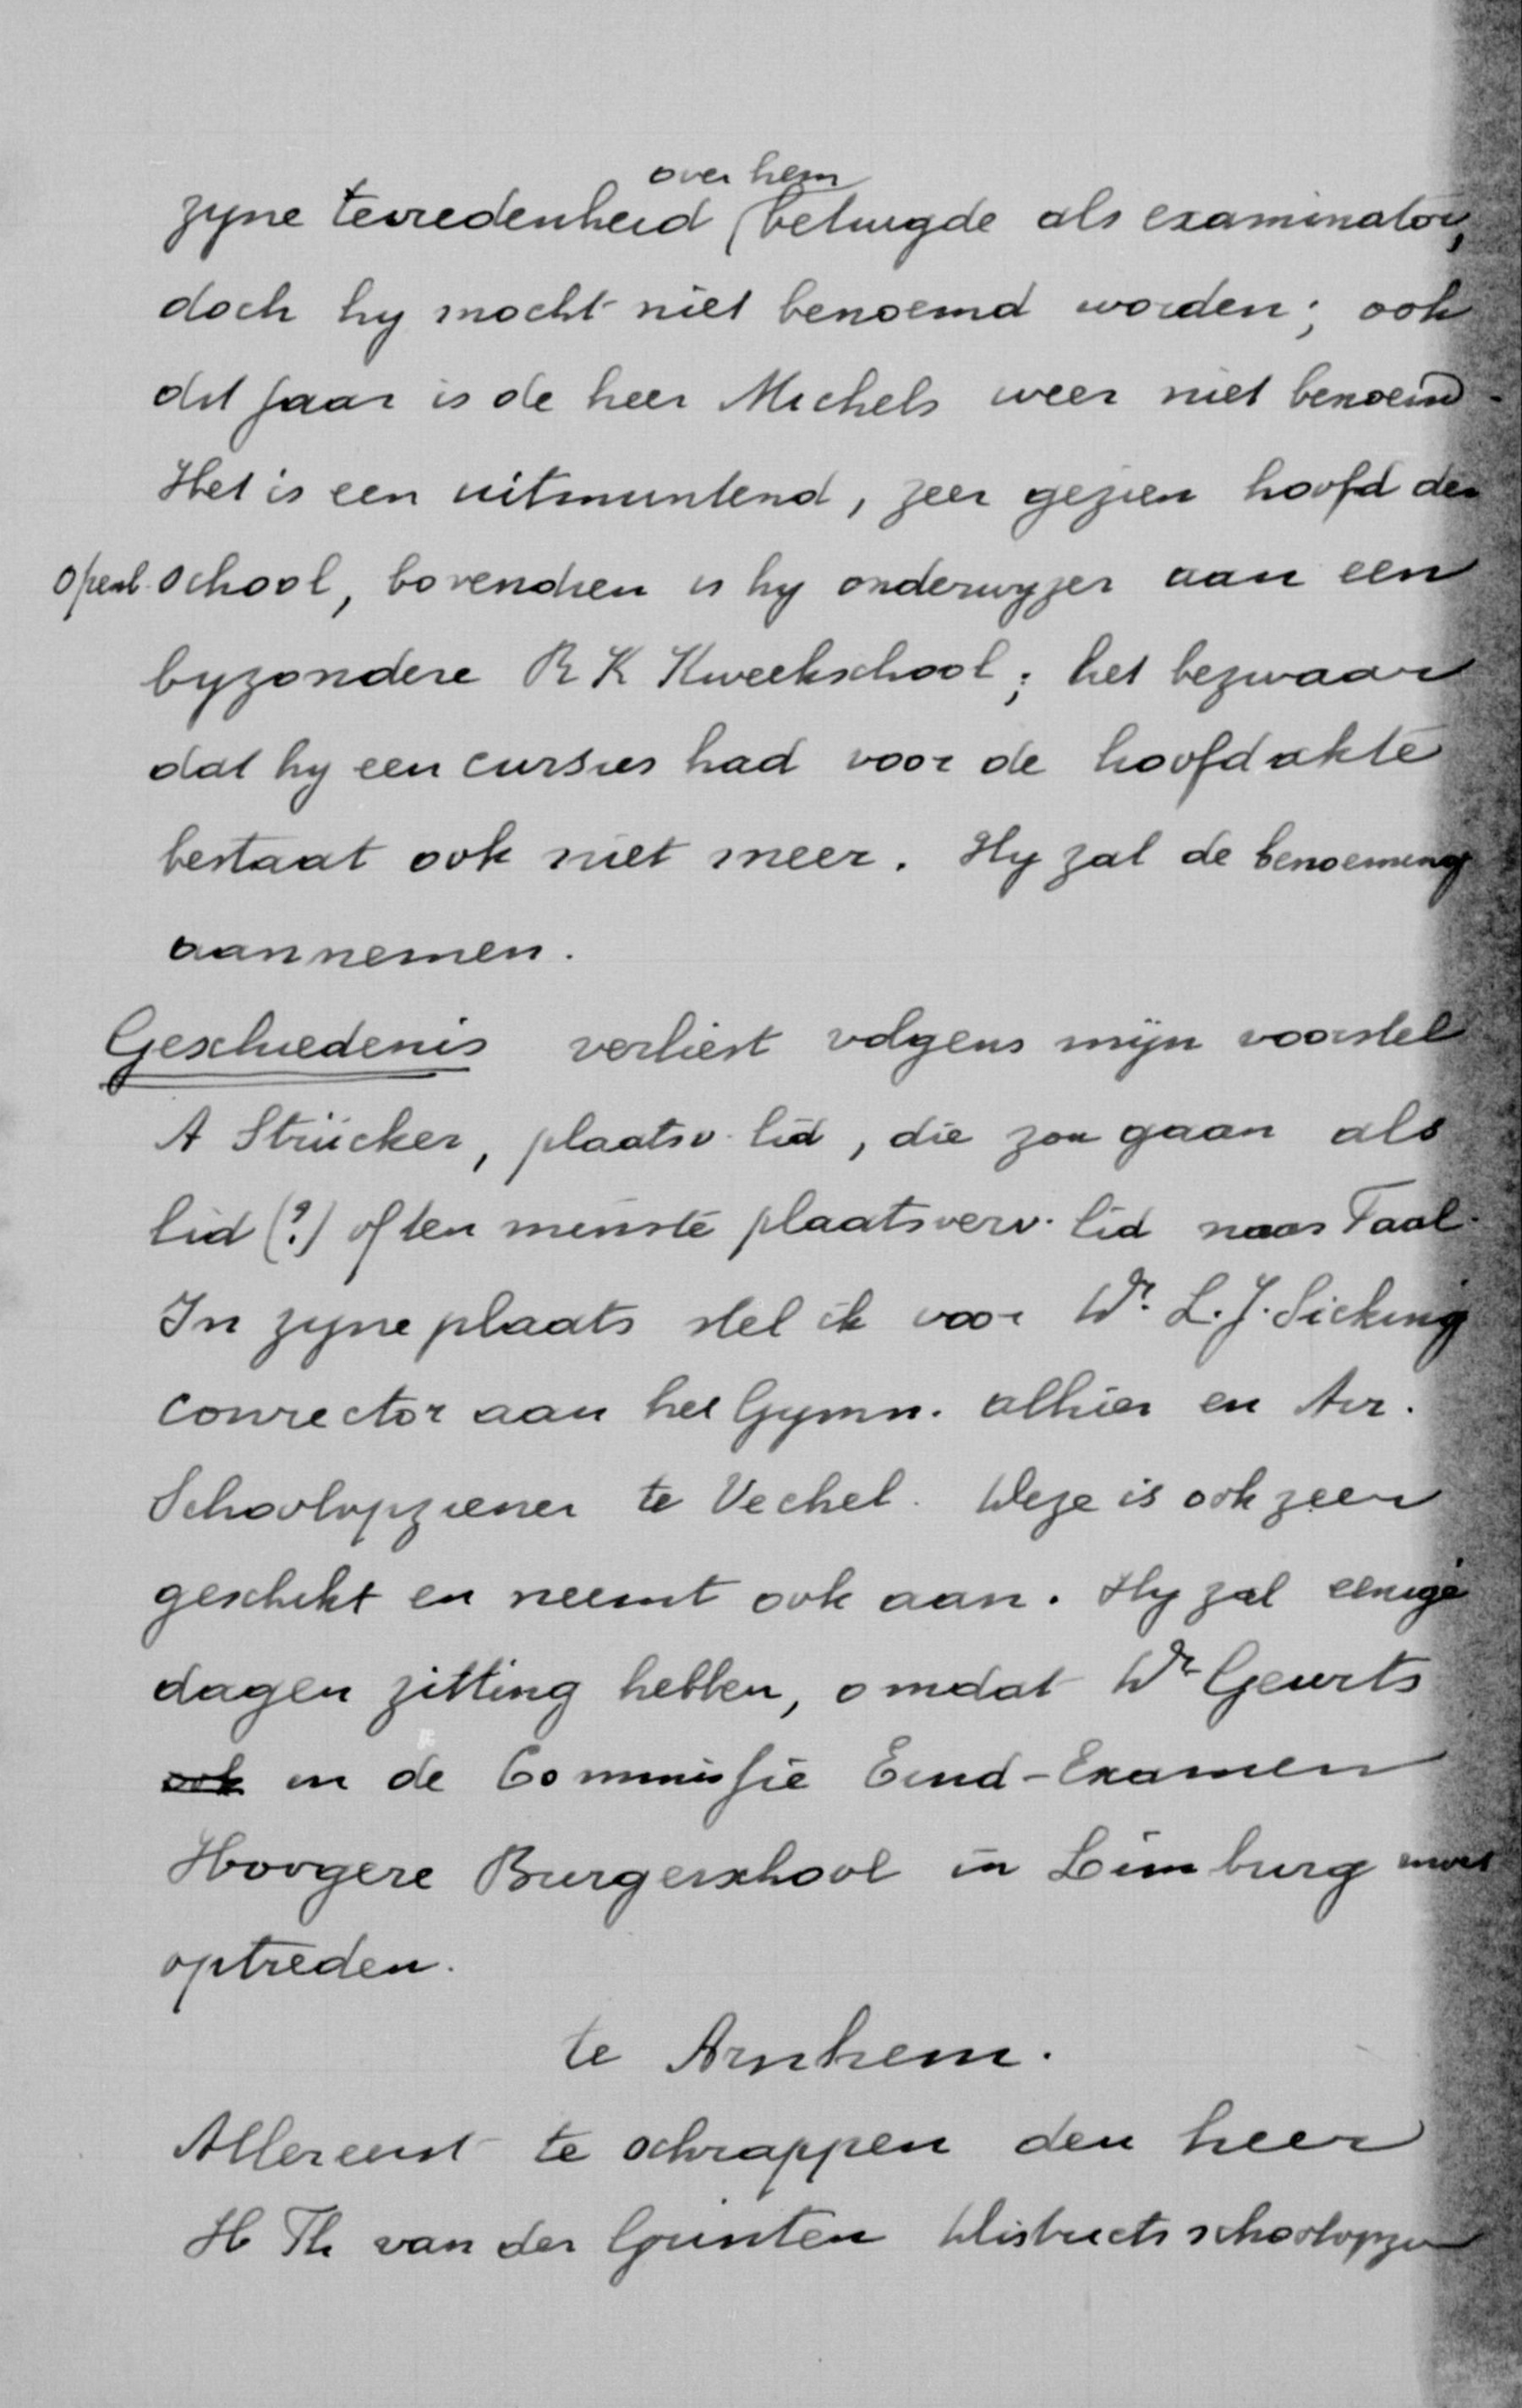 over hem
zyne tevredenheid betuigde als examinator,
doch hy mocht niet benoemd worden; ook
dit jaar is de heer Michels weer niet benoemd.
Het is een uitmuntend, zeer gezien hoofd der
openb. school, bovendien is hy onderwyzer aan een
byzondere R K Kweekschool; het bezwaar
dat hy een cursus had voor de hoofdakte
bestaat ook niet meer. Hy zal de benoeming
aannemen.
Geschiedenis verliest volgens mijn voorstel
A Strücker, plaatsv. lid, die zou gaan als
lid (?) of ten minste plaatsverv. lid naar Taal.
In zyne plaats stel ik voor Dr. L. J. Sicking
conrector aan het Gymn. alhier en Arr.
Schoolopziener te Vechel. Deze is ook zeer
geschikt en neemt ook aan. Hy zal eenige
dagen zitting hebben, omdat Dr Geurts
ook in de Commissie Eind-Examen
Hoogere Burgerschool in Limburg moet
optreden.
te Arnhem.
Allereerst te schrappen den heer
H Th van der Grinten Districts schoolopzien